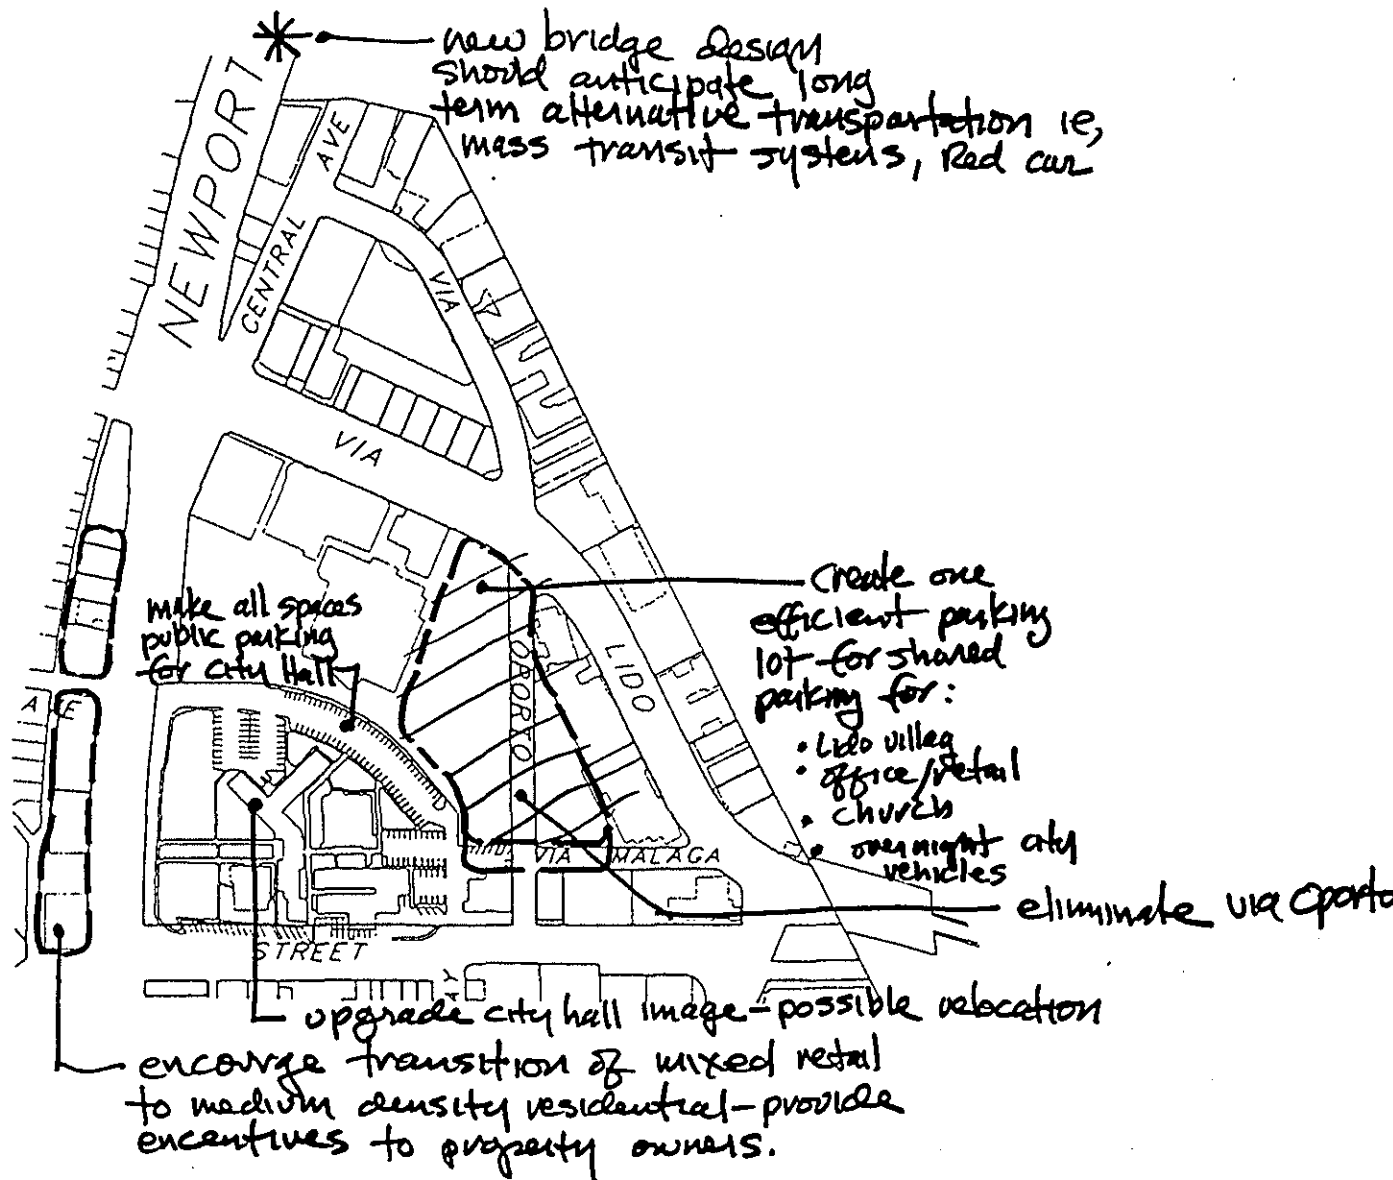 new bridge design
should anticipate long
term alternative transportation ie,
mass transit systems, Red car
NEWPORT
CENTRAL AVE
VIA
VIA
LIDO
make all spaces
public parking
for City Hall
OPORTO
create one
efficient parking
lot for shared
parking for:
• Lido villag
• office/retail
• church
• overnight city
vehicles
VIA MALAGA
eliminate via Oporto
STREET
upgrade city hall image - possible relocation
encourge transition of mixed retail
to medium density residential - provide
encentives to property owners.